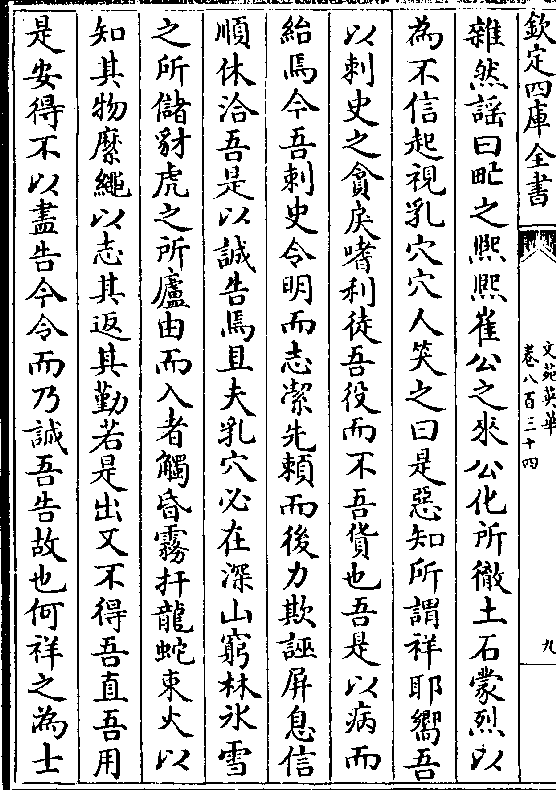 欽定四庫全書
文苑英華
卷八百三十四
九
雜然謡曰甿之熈熈崔公之來公化所徹土石蒙烈以
為不信起視乳穴穴人笑之曰是惡知所謂祥耶嚮吾
以刺史之貪戾嗜利徒吾役而不吾貨也吾是以病而
紿焉今吾刺史令明而志潔先賴而後力欺誣屏息信
順休洽吾是以誠告焉且夫乳穴必在深山窮林氷雪
之所儲豺虎之所廬由而入者觸昏霧扞龍蛇束火以
知其物縻繩以志其返其勤若是出又不得吾直吾用
是安得不以盡告今令而乃誠吾告故也何祥之為士